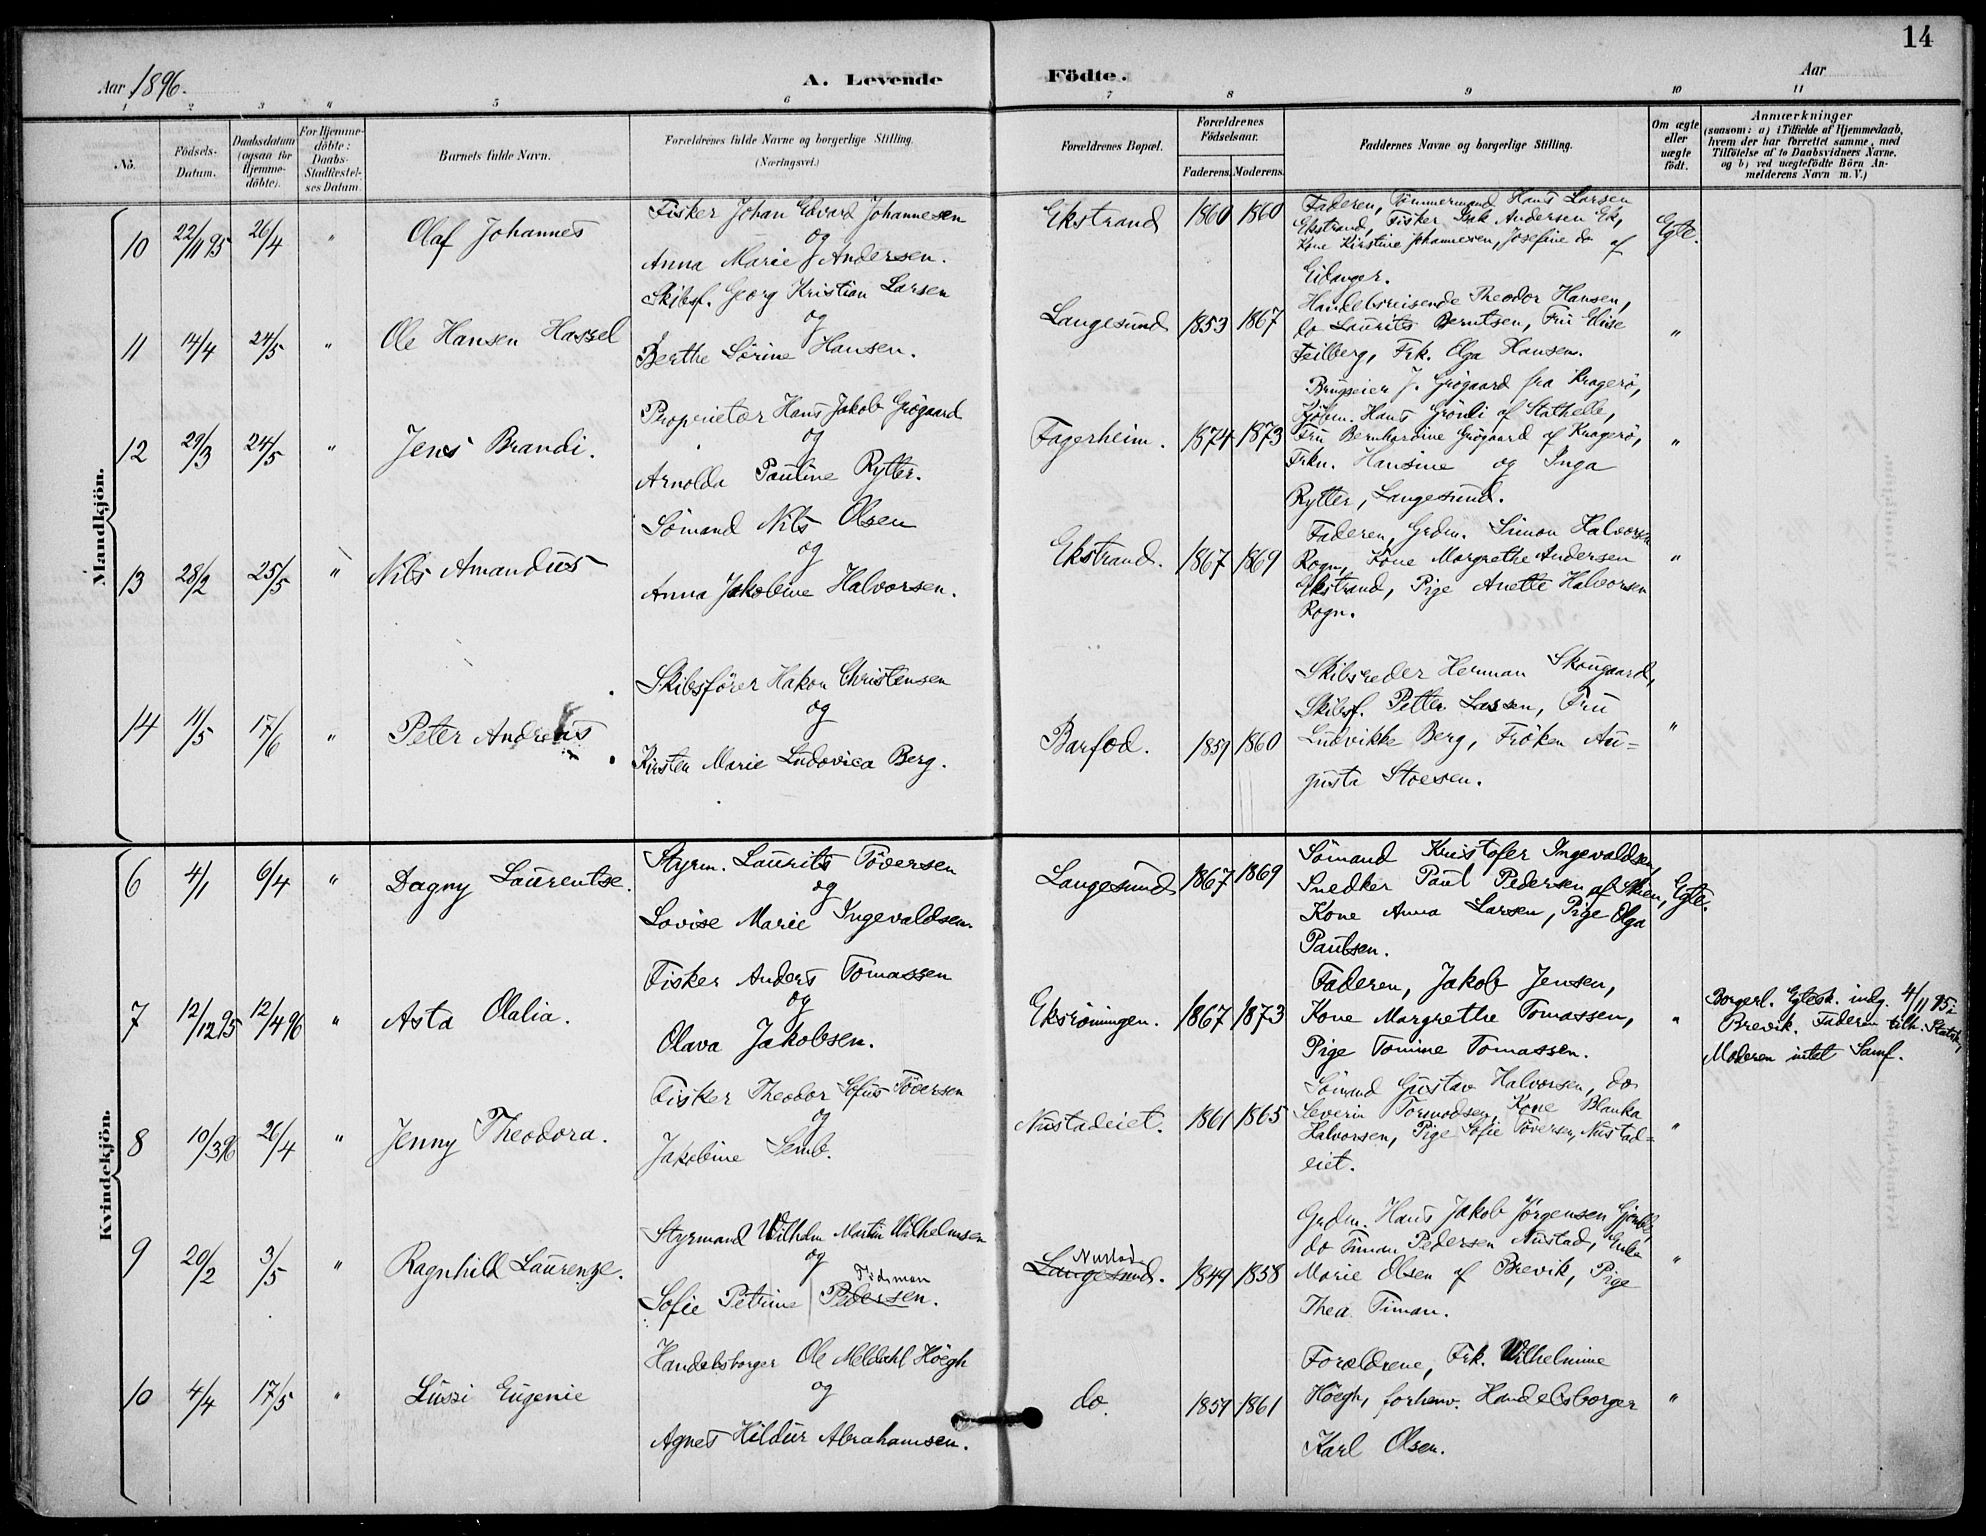 14
Aar 1896.
A. Levende Födte.
Aar
1 2 3 " 5 6 7 8 9 10 11
No.
Födsels-Datum.
Daabsdatum (ogsaa for Hjemme-döbte).
For Hjemme-döbte: Daabs-Stadfæstel-ses Datum.
Barnets fulde Navn.
Forældrenes fulde Navne og borgerlige Stilling. (Næringsvei.)
Forældrenes Bopæl.
Forældrenes Födselsaar.
Faderens. Moderens.
Faddernes Navne og borgerlige Stilling.
Om ægte eller uægte født.
Anmærkninger
(saasom: a) i Tilfælde af Hjemmedaab,
hvem der har forrettet samme, med
Tilföielse af to Daabsvidners Navne,
og b) ved uægtefödte Börn An-
melderens Navn m. V.)
Mandkjön.
10 22/11 95 26/4 " Olaf Johannes
Fisker Johan Edvard Johannesen
og
Anna Marie Andersen.
Ekstrand 1860 1860
Faderen, Tömmermand Hans Larsen
Ekstrand, Fisker Isak Andersen Ek,
Kone Kirstine Johannesen, Josefine do af
Eidanger.
Egte.
11 14/4 24/5 " Ole Hansen Hassel
Skibsf. Georg Kristian Larsen
og
Berthe Sörine Hansen.
Langesund 1853 1867
Handelsreisende Theodor Hansen,
do Laurits Berntsen, Fru Elise
Feilberg, Frk. Olga Hansen.
"
12 29/3 24/5 " Jens Brandi.
Proprietær Hans Jakob Grögaard
og
Arnolda Pauline Rytter.
Fagerheim. 1874 1873
Brugseier J. Grögaard fra Kragerö,
Kjöbm. Hans Grönli af Stathelle,
Fru Bernhardine Grögaard af Kragerö,
Frkn. Hansine og Inga
Rytter, Langesund.
"
13 28/2 25/5 " Nils Amandus
Sömand Nils Olsen
og
Anna Jakobine Halvorsen.
Ekstrand. 1867 1869
Faderen, Grdm. Simon Halvorsen
Rogn, Kone Margrethe Andersen
Ekstrand, Pige Anette Halvorsen
Rogn.
"
14 11/5 17/6 " Peter Andreas
Skibsförer Hakon Christensen
og
Kirsten Marie Ludovica Berg.
Barfod. 1851 1860
Skibsreder Herman Skougaard,
Skibsf. Petter Larsen, Fru
Ludvikke Berg, Fröken Au-
gusta Stoesen.
"
Kvindekjön.
6 4/1 6/4 " Dagny Laurentse.
Styrm. Laurits Töversen
og
Lovise Marie Ingevaldsen.
Langesund 1867 1869
Sömand Kristofer Ingevaldsen,
Snedker Paul Pedersen af Skien,
Kone Anna Larsen, Pige Olga
Paulsen.
Egte.
7 12/12 95 12/4 96 " Asta Olalia.
Fisker Anders Tomassen
og
Olava Jakobsen.
Eksröningen. 1867 1873
Faderen, Jakob Jensen,
Kone Margrethe Tomassen,
Pige Tomine Tomassen.
"
Borgerl. Egtesk. indg. 4/11 95 i
Brevik. Faderen tilh. Statsk,
Moderen intet Samf.
8 10/3 96 26/4 " Jenny Theodora.
Fisker Theodor Sofus Töversen
og
Jakobine Semb.
Nustadeiet. 1861 1865
Sömand Gustav Halvorsen, do
Severin Tormodsen, Kone Blanka
Halvorsen, Pige Sofie Töversen, Nustad-
eiet.
"
9 20/2 3/5 " Ragnhild Laurenze.
Styrmand Wilhelm Martin Wilhelmsen
og
Tidsman
Sofie Petrine Pedersen.
Nustad
Langesund. 1849 1858
Grdm. Hans Jakob Jörgensen
do Timan Pedersen Nustad, Enke
Marie Olsen af Brevik, Pige
Thea Timan.
"
10 4/4 17/5 " Lussi Eugenie
Handelsborger Ole Meldahl Höegh
og
Agnes Hildur Abrahamsen.
do. 1851 1861
Forældrene, Frk. Wilhelmine
Höegh, forhenv. Handelsborger
Karl Olsen.
"